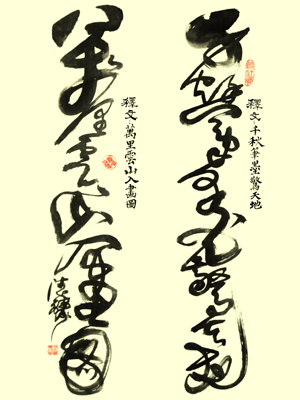 千秋筆墨驚天地
釋文:千秋筆墨驚天地
萬里雲山入畫圖
釋文:萬里雲山入畫圖